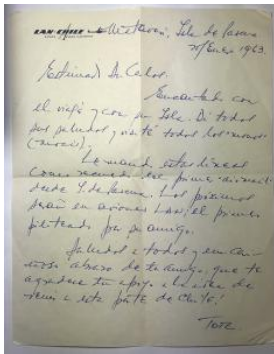 LAN-CHILE Mataveri, Isla de Pascua
Enero 1963.
Estimado Dn Carlos.
Encantado con
el viaje y con su Isla. Di todos
sus saludos y visité todos los "moais"
Le mando estas líneas
como recuerdo del primer
desde I. de Pascua. Los próximos
serán en aviones LAN, el primero
piloteado por su amigo.
Saludos a todos y un cari-
ñoso abrazo de tu amigo, que te
agradece tu apoyo a la idea de
venir a esta parte de Chile!